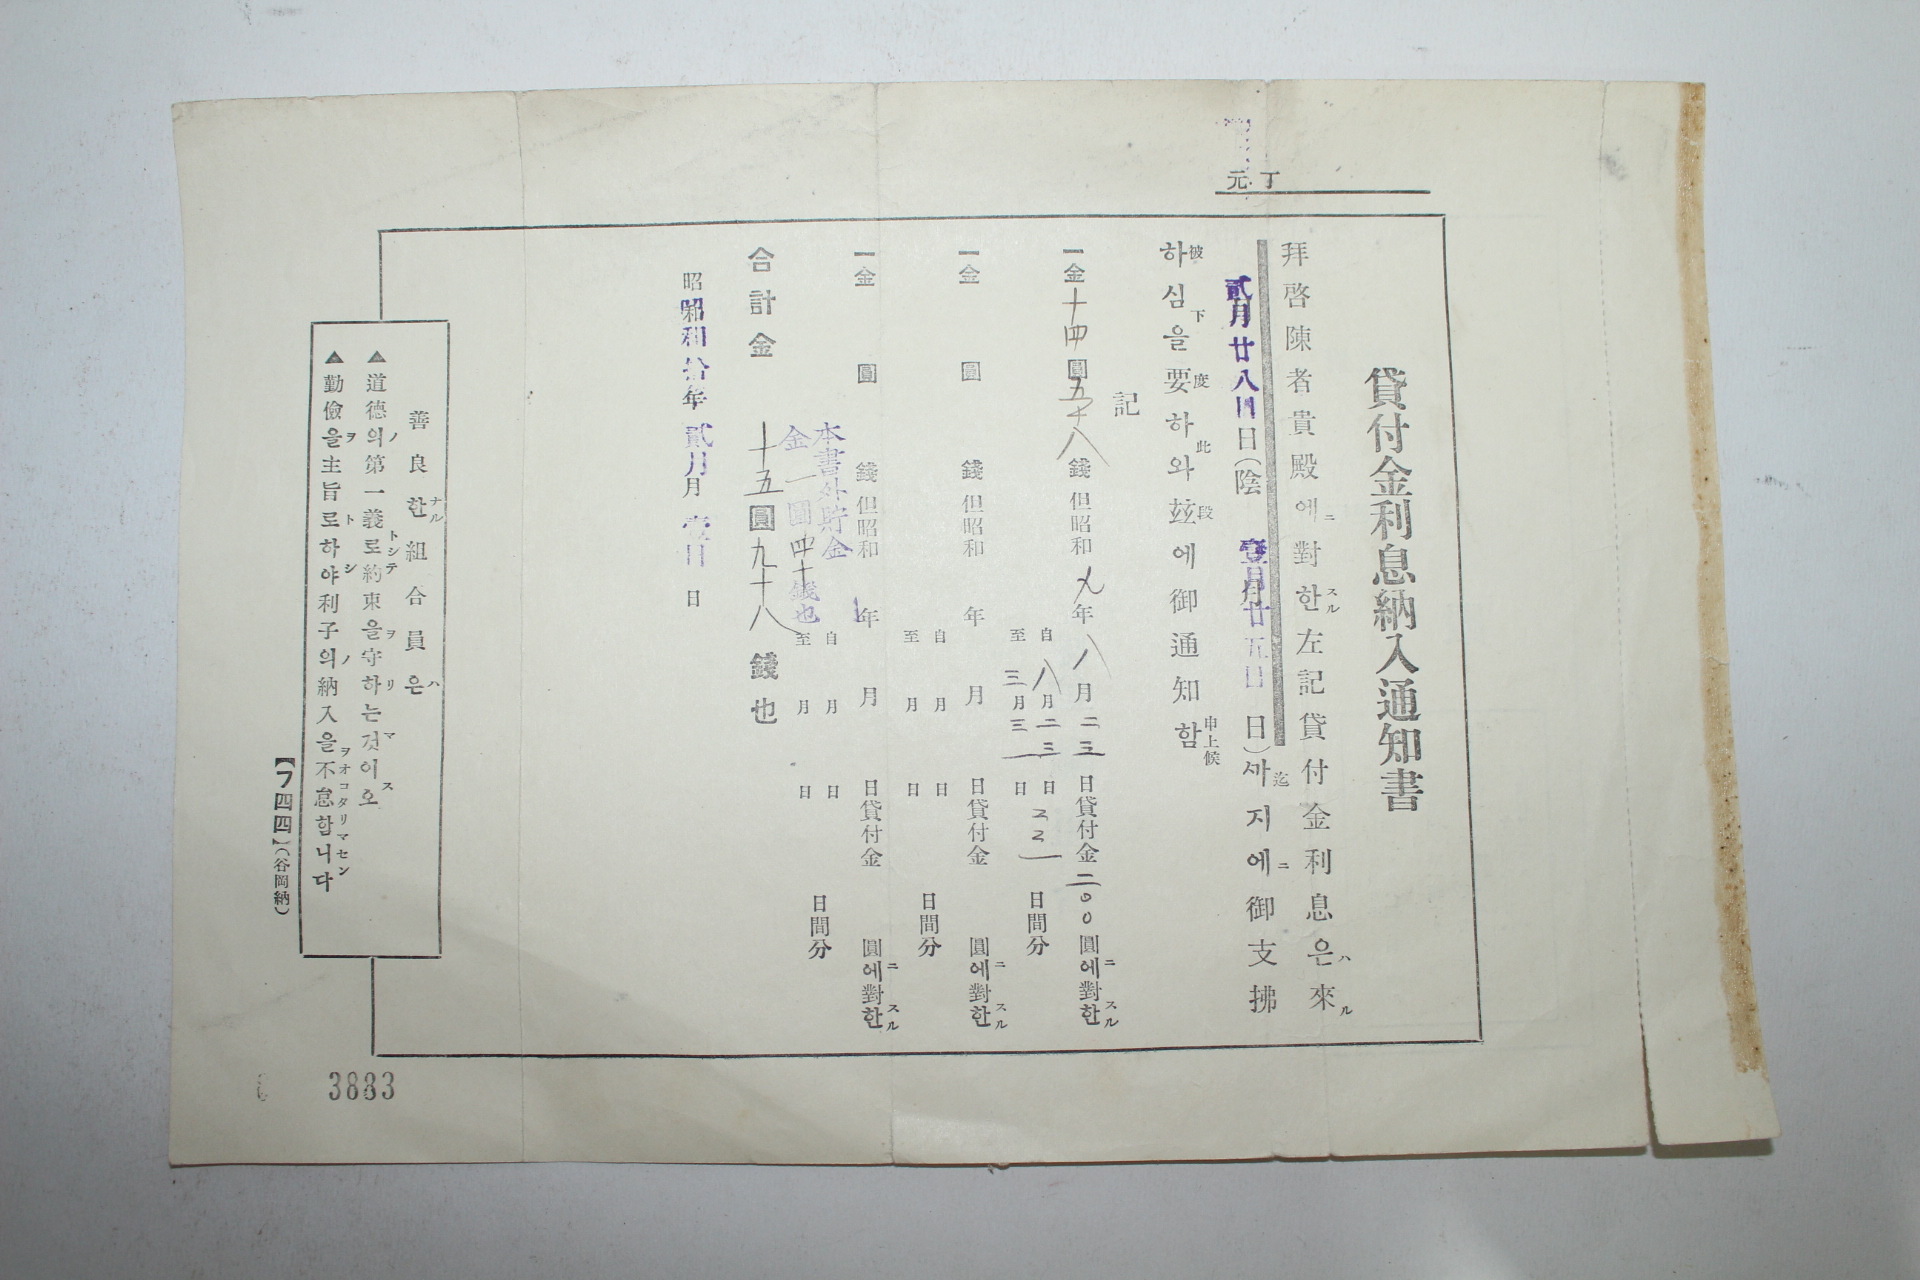 元丁
貸付金利息納入通知書
拜啓陳者貴殿에對한左記貸付金利息은來
ニ スル ハ ル
貳月廿八日日(陰 壹月月廿五日 日)싸지에御支拂
迄 ニ
하심을要하와玆에御通知함
被下度此段申上候
記
一金十四圓五十八錢 但昭和九年八月二三日貸付金二〇〇圓에對한
ニ スル
自八月二三日
至三月三一日
日間分
一金 圓 錢 但昭和 年 月 日貸付金 圓에對한
ニ スル
自 月 日
至 月 日
日間分
一金 圓 錢 但昭和 年 月 日貸付金 圓에對한
ニ スル
自 月 日
至 月 日
日間分
本書外貯金
金一圓四十錢也
合計金 十五圓九十八錢也
昭和昭和拾年年貳月月壹日 日
善良한組合員은
ナル ハ
▲道德의第一義로約束을守하는것이오
ノ トシテ ヲ リマス
▲勤儉을主旨로하야利子의納入을不怠합니다
ヲ トシ ノ ヲオコタリマセン
【フ四四】(谷岡納)
3883